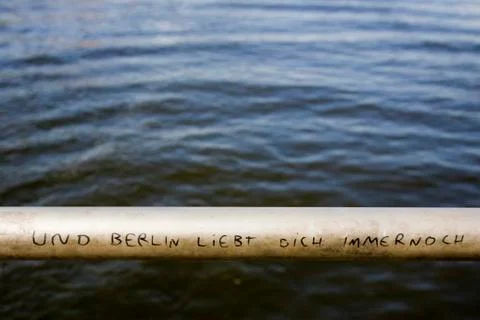 UND BERLIN LiEBT DiCH IMMERNOCH